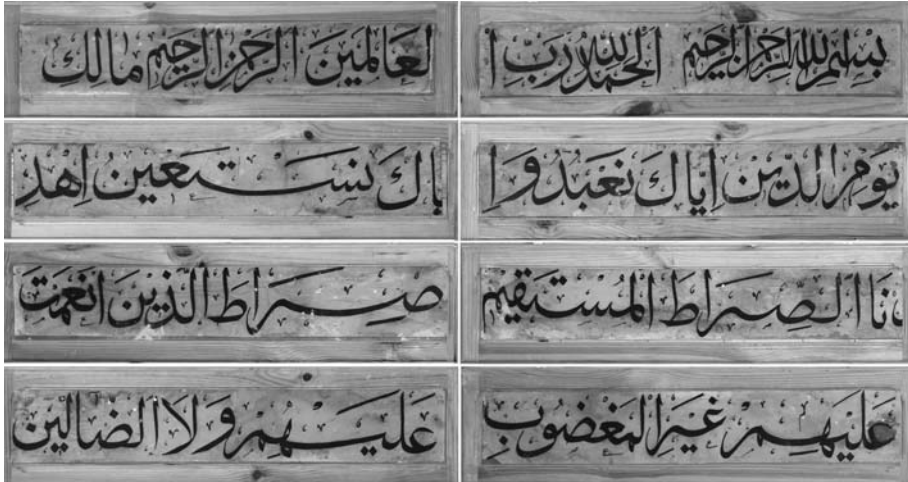 بِسْمِ اللهِ الرَّحْمٰنِ الرَّحِيْمِ الْحَمْدُ لِلّٰهِ رَبِّ ا
لْعَالَمِيْنَ الرَّحْمٰنِ الرَّحِيْمِ مَالِكِ
يَوْمِ الدِّيْنِ اِيَّاكَ نَعْبُدُ وَ ا
يَّاكَ نَسْتَعِيْنُ اِهْدِ
نَا الصِّرَاطَ الْمُسْتَقِيْمَ
صِرَاطَ الَّذِيْنَ اَنْعَمْتَ
عَلَيْهِمْ غَيْرِ الْمَغْضُوْبِ
عَلَيْهِمْ وَلَا الضَّالِّيْنَ